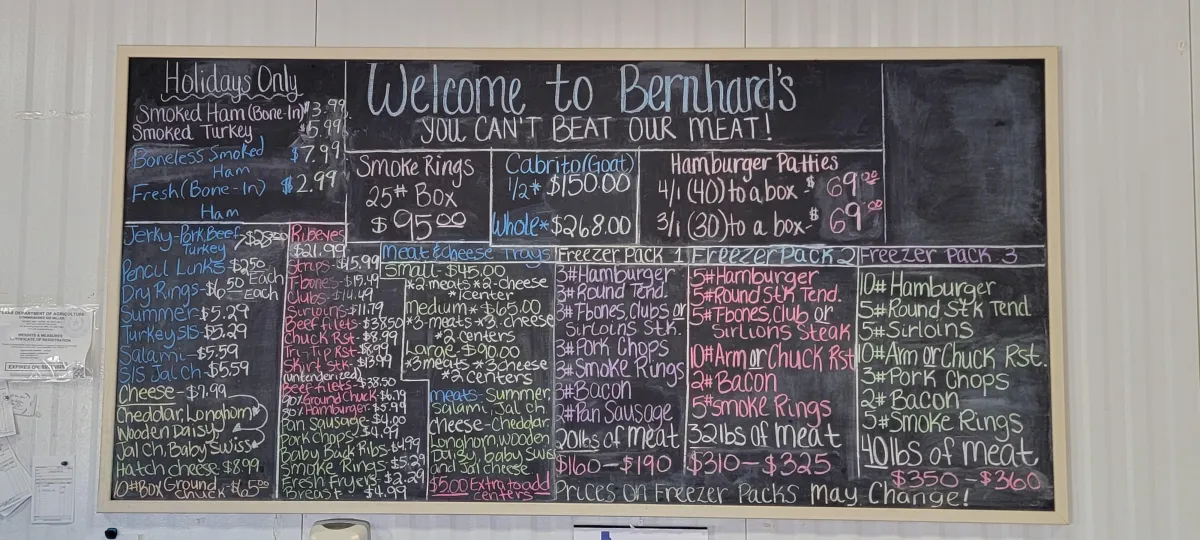 Holidays Only
Smoked Ham (Bone-In) $3.99
Smoked Turkey $5.99
Boneless Smoked $7.99
Ham
Fresh (Bone-In) $2.99
Ham
Welcome to Bernhard's
YOU CAN'T BEAT OUR MEAT!
Smoke Rings
25# Box
$95.00
Cabrito (Goat)
1/2* $150.00
Whole* $268.00
Hamburger Patties
4/1 (40) to a box - $69.00
3/1 (30) to a box - $69.00
Jerky-Pork, Beef
Turkey
Pencil Links - $2.50
Each
Dry Rings - $6.50
Each
Summer - $5.29
Turkey S/S - $5.29
Salami - $5.59
S/S Jal ch. $6.59
Cheese - $7.99
Cheddar, Longhorn
Wooden Daisy
Jal ch, Baby Swiss
Hatch cheese $8.99
10# Box Ground
Chuck
Ribeyes
$21.99
Strips - $15.99
T-bones - $15.49
Clubs - $14.49
Sirloins - $11.79
Beef filets - $38.50
Chuck Rst - $8.99
Tri-Tip Rst - $8.99
Skirt Stk - $13.99
(untenderized)
Beef filets - $38.50
90% Ground Chuck - $6.79
80% Hamburger - $5.99
Pan Sausage - $4.00
Pork Chops - $4.99
Baby Back Ribs - $4.99
Smoke Rings - $5.29
Fresh Fryers - $2.29
Breast $4.99
Meat & Cheese Trays
Small - $45.00
*2-meats *2-cheese
*1 center
medium * $65.00
*3-meats *3-cheese
*2 centers
Large - $90.00
*3 meats *3 cheese
*2 centers
meats - Summer,
Salami, Jal ch.
cheese - Cheddar,
Longhorn, wooden
Daisy, baby swiss
and Jal cheese
$5.00 Extra to add
centers
Freezer Pack 1
3# Hamburger
3# Round Tend.
3# Tbones, Clubs or
Sirloins Stk.
3# Pork Chops
3# Smoke Rings
3# Bacon
2# Pan Sausage
20lbs of meat
$160 - $190
Freezer Pack 2
5# Hamburger
5# Round Stk Tend.
5# Tbones, Club or
Sirloins Steak
10# Arm or Chuck Rst
2# Bacon
5# Smoke Rings
32lbs of meat
$310 - $325
Freezer Pack 3
10# Hamburger
5# Round Stk Tend
5# Sirloins
10# Arm or Chuck Rst.
3# Pork Chops
2# Bacon
5# Smoke Rings
40lbs of meat
$350 - $360
Prices on Freezer Packs may Change!